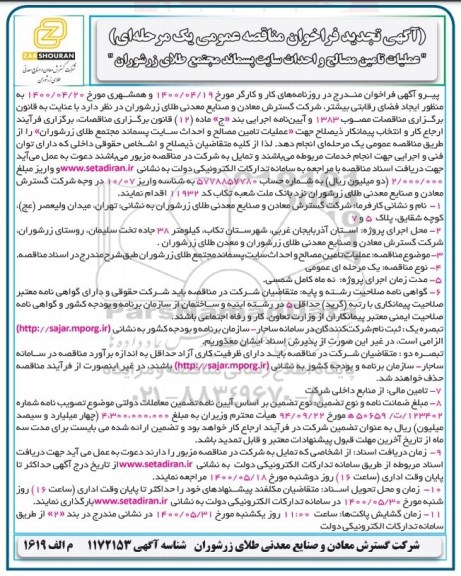 ZARSHOURAN
شرکت گسترش معادن و صنایع معدنی
طلای زرشوران
(آگهی تجدید فراخوان مناقصه عمومی یک مرحله‌ای)
"عملیات تامین مصالح و احداث سایت پسماند مجتمع طلای زرشوران"
پیرو آگهی فراخوان مندرج در روزنامه‌های کار و کارگر مورخ ۱۴۰۰/۰۴/۱۹ و همشهری مورخ ۱۴۰۰/۰۴/۲۰ به
منظور ایجاد فضای رقابتی بیشتر، شرکت گسترش معادن و صنایع معدنی طلای زرشوران در نظر دارد با عنایت به قانون
برگزاری مناقصات مصوب ۱۳۸۳ و آیین‌نامه اجرایی بند «ج» ماده (۱۲) قانون برگزاری مناقصات، برگزاری فرآیند
ارجاع کار و انتخاب پیمانکار ذیصلاح جهت «عملیات تامین مصالح و احداث سایت پسماند مجتمع طلای زرشوران» را از
طریق مناقصه عمومی یک مرحله‌ای انجام دهد. لذا از کلیه متقاضیان ذیصلاح و اشخاص حقوقی داخلی که دارای توان
فنی و اجرایی جهت انجام خدمات مربوطه می‌باشند و تمایل به شرکت در مناقصه مزبور می‌باشند دعوت به عمل می‌آید
جهت دریافت اسناد مناقصه با مراجعه به سامانه تدارکات الکترونیکی دولت به نشانی www.setadiran.ir و واریز مبلغ
۲/۰۰۰/۰۰۰ (دو میلیون ریال) به شماره حساب ۵۷۷۸۸۵۷۷۸۰ به شناسه واریز ۱۰/۰۷ در وجه شرکت گسترش
معادن و صنایع معدنی طلای زرشوران نزد بانک ملت شعبه تکاب کد ۱۹۳۲/۱ اقدام نمایند.
۱- نام و نشانی کارفرما: شرکت گسترش معادن و صنایع معدنی طلای زرشوران به نشانی: تهران، میدان ولیعصر (عج)،
کوچه شقایق، پلاک ۵ و ۷
۲- محل اجرای پروژه: استان آذربایجان غربی، شهرستان تکاب، کیلومتر ۳۸ جاده تخت سلیمان، روستای زرشوران،
شرکت گسترش معادن و صنایع معدنی طلای زرشوران و معدن طلای زرشوران.
۳- موضوع مناقصه: عملیات تامین مصالح و احداث سایت پسماند مجتمع طلای زرشوران طبق شرح مندرج در اسناد مناقصه.
۴- نوع مناقصه: یک مرحله ای عمومی
۵- مدت زمان اجرای پروژه: نه ماه کامل شمسی.
۶- گواهی نامه صلاحیت رشته و پایه: متقاضیان شرکت در مناقصه باید شرکت حقوقی و دارای گواهی نامه معتبر
صلاحیت پیمانکاری با رتبه (گرید) حداقل ۵ در رشته ابنیه و ساختمان از سازمان برنامه و بودجه کشور و گواهی نامه
صلاحیت ایمنی معتبر پیمانکاران از وزارت تعاون، کار و رفاه اجتماعی باشند.
تبصره یک: ثبت نام شرکت‌کنندگان در سامانه ساجار- سازمان برنامه و بودجه کشور به نشانی (http://sajar.mporg.ir)
الزامی است. در غیر این صورت از پذیرش اسناد ایشان معذوریم.
تبصره دو: متقاضیان شرکت در مناقصه باید دارای ظرفیت کاری آزاد حداقل به اندازه برآورد مناقصه در سامانه
ساجار- سازمان برنامه و بودجه کشور به نشانی (http://sajar.mporg.ir) باشند، در غیر اینصورت از فرآیند مناقصه
حذف خواهند شد.
۷- تامین مالی: از منابع داخلی شرکت
۸- مبلغ ضمانت نامه و نوع تضمین: نوع تضمین بر اساس آیین نامه تضمین معاملات دولتی موضوع تصویب نامه شماره
۱۲۳۴۰۲/ت/۵۰۶۵۹ ه مورخ ۹۴/۰۹/۲۲ هیأت محترم وزیران به مبلغ ۴.۳۰۰.۰۰۰.۰۰۰ (چهار میلیارد و سیصد
میلیون) ریال به عنوان تضمین شرکت در فرآیند ارجاع کار خواهد بود و تضمین ارائه شده می بایست برای مدت سه
ماه از تاریخ آخرین مهلت قبول پیشنهادات معتبر و قابل تمدید باشد.
۹- زمان دریافت اسناد: از اشخاصی که تمایل به شرکت در مناقصه مزبور را دارند دعوت به عمل می آید جهت دریافت
اسناد مربوطه از طریق سامانه تدارکات الکترونیکی دولت به نشانی www.setadiran.ir از تاریخ درج آگهی حداکثر تا
پایان وقت اداری (ساعت ۱۶) روز دوشنبه مورخ ۱۴۰۰/۰۵/۱۸ مراجعه نمایند.
۱۰- زمان و محل تحویل اسناد: متقاضیان مکلفند پیشنهادهای خود را حداکثر تا پایان وقت اداری (ساعت ۱۶) روز
شنبه مورخ ۱۴۰۰/۰۵/۳۰ در سامانه تدارکات الکترونیکی دولت به نشانی www.setadiran.ir بارگذاری نمایند.
۱۱- زمان گشایش پاکت‌ها: ساعت ۱۱:۰۰ روز یکشنبه مورخ ۱۴۰۰/۰۵/۳۱ در نشانی مندرج در بند «۲» از طریق
سامانه تدارکات الکترونیکی دولت
شرکت گسترش معادن و صنایع معدنی طلای زرشوران شناسه آگهی ۱۱۷۲۱۵۳ م الف ۱۶۱۹